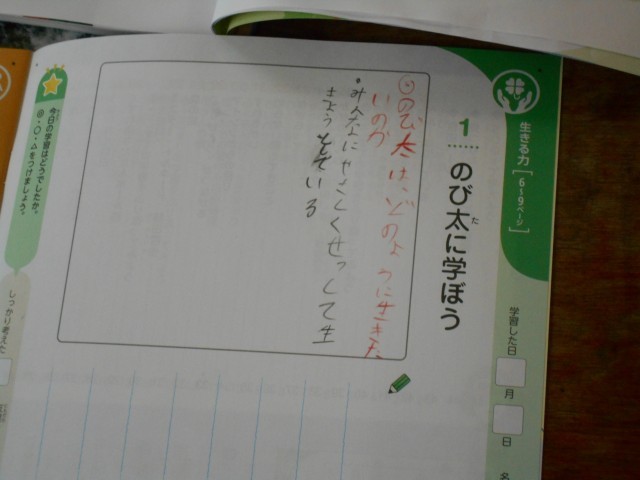 生きる力[6〜9ページ]
1 のび太に学ぼう
た
学習した日
月
日
名
◎のび太は、どのように生きた
いのか
・みんなにやさしくせっして生
きようとしている
今日の学習はどうでしたか。
◎・○・△をつけましょう。
しっかり考えた